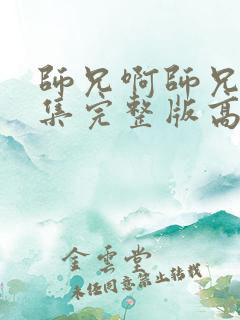 師兄啊師兄
集完整版高
金雲堂
未经同意禁止转载